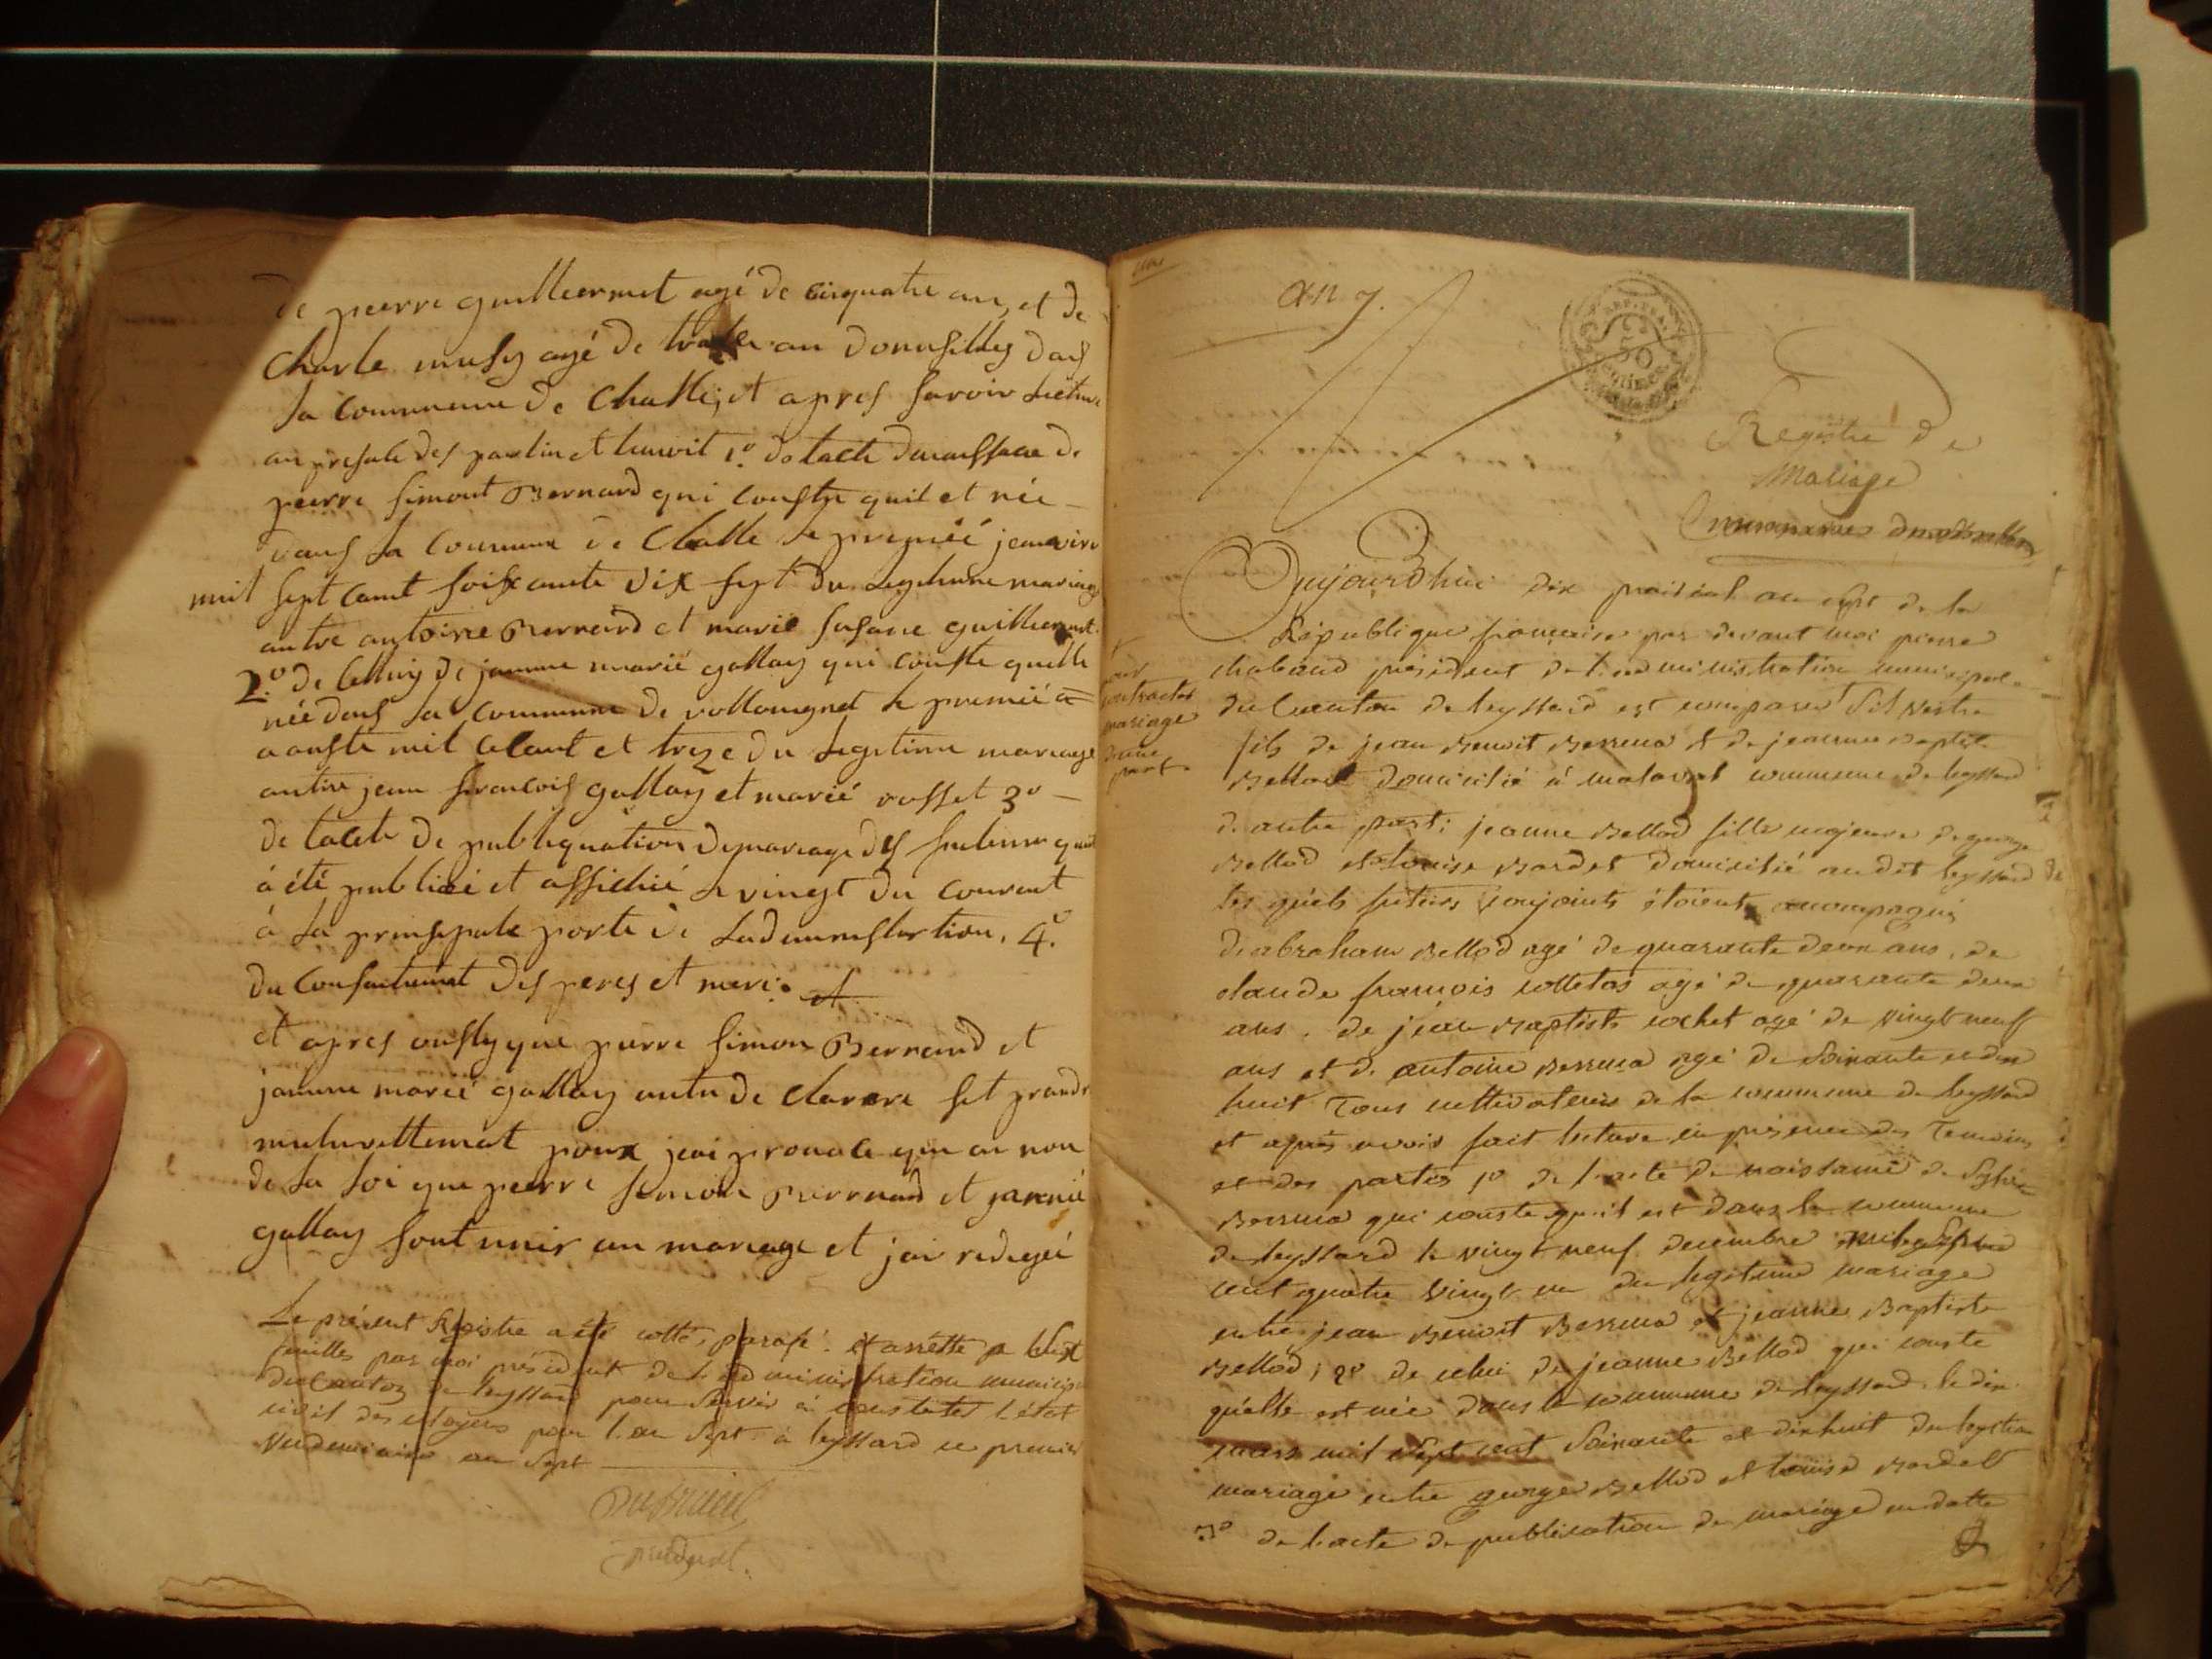 de pierre guilliermet agé de cinquatre ans, et de
Charle musy agé de an domisilliez dans
la commune de Challe, et apres
an presale des parties et temoit 1.o de lacte de
pierre simont Bernard qui conste quil et née
dans la commune de Challe le premiéé jeanvire
mil sept cent soixante dix sept du legitime mariage
antre antoine Bernard et marie susane guilliermet
2.o de celluy de jeanne marié gallay qui conste quelle
née dans la commune de vollougnat le premié a=
aouste mil et treze du legitime mariage
antre jean francois gallay et marié rosset 3o
de lacte de publiquation de mariage des
à été publiéé et affichéé le vingt du courent
à la prinsipale porte de 4.o
du des peres et
et apres que pierre simon Bernard et
jeanne marié gallay
mutuellement pour jai pronoce que au nom
de la loi que pierre simon Bernard et
gallay sont unir an mariage et jai redigéé
Le présent Registre a été cotté, parafé et arretté a
feuilles par moi président de l'administration municip
du Canton de leyssard pour servir à constater l'état
civil des citoyens pour l'an sept à leyssard ce premier
vendemiaire an sept
président.
an 7.
50
Registre de
Mariage
Aujourdhui dix prairial an sept de la
République française par devant moi pierre
chabaud président de l'administration municipale
du Canton de leyssard est comparu Silvestre
pour
contracter
mariage
d'une
part
fils de jean Benoit et de jeanne Baptiste
Bellod domicilié à malaval commune de leyssard
d'autre part; jeanne Bellod fille majeure de george
Bellod et louise Bordet domicilié audit leyssard
les quels futurs conjoints étoient accompagnés
d'abraham Bellod agé de quarante deux ans, de
claude françois agé de quarante deux
ans, de jean Baptiste cochet agé de vingt neuf
ans et d'antoine agé de soixante et dix
huit Tous cultivateurs de la commune de leyssard
et après avoir fait lecture en présence des Temoins
et des parties 1o de l'acte de naissance de
qui conste qu'il est dans la commune
de leyssard le vingt neuf decembre mil sept
cent quatre vingt un du legitime mariage
entre jean Benoit et jeanne Baptiste
Bellod; 2o de celui de jeanne Bellod qui conste
qu'elle est née dans la commune de leyssard le dix
mars mil sept cent soixante et dix huit du legitime
mariage entre george Bellod et louise Bordet
3o de l'acte de publication de mariage en datte